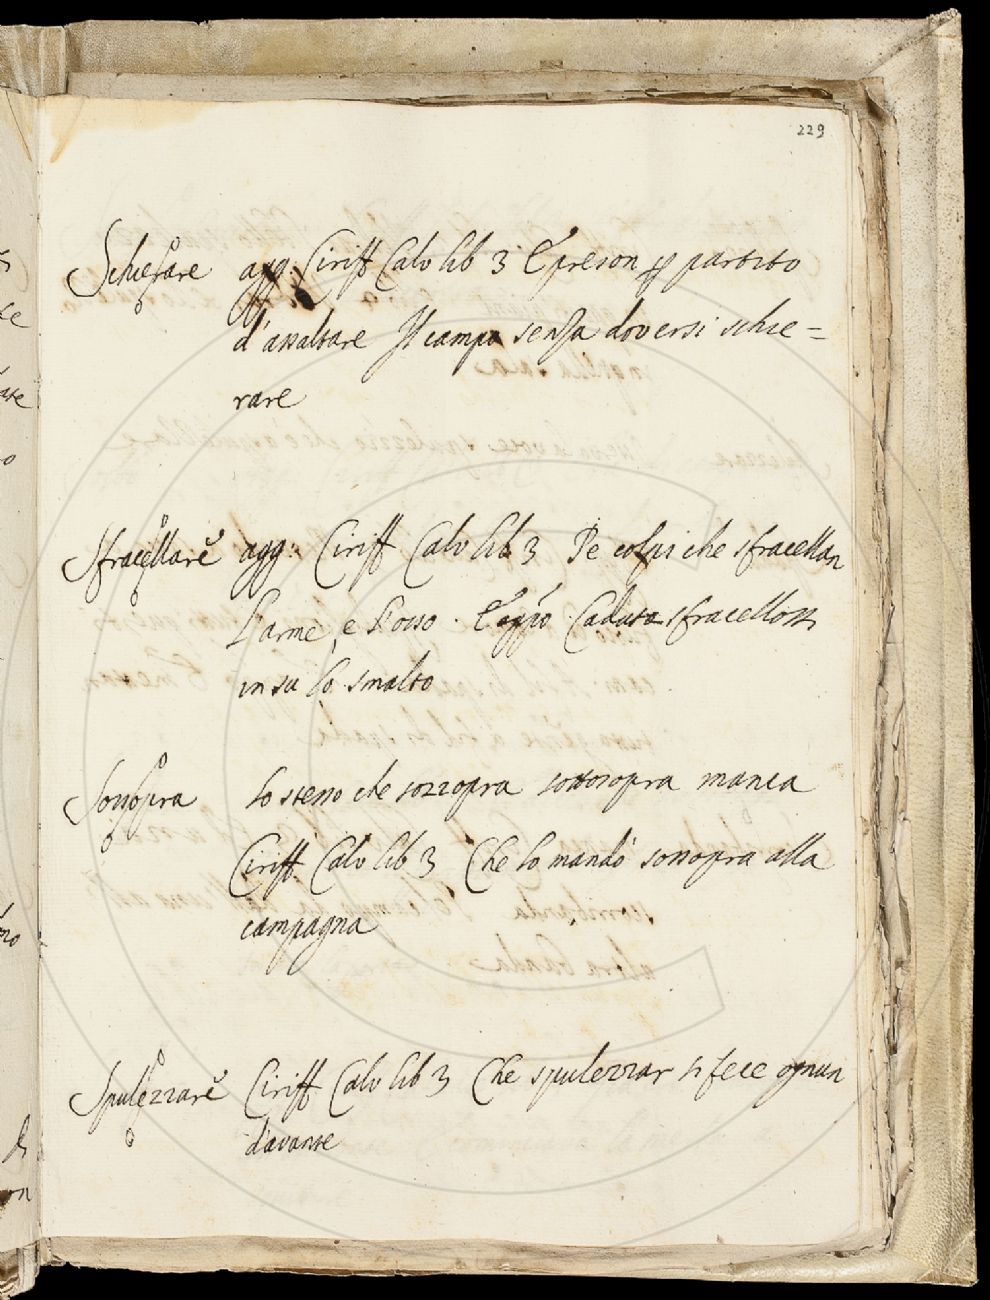 229
Schierare agg: Ciriff Calv lib 3 E preson p partito
d'assaltare Il campo senza doversi schie=
rare
Sfracellare agg: Ciriff Calv lib 3 De colpi che sfracellan
L'arme, e l'osso. E Caduta sfracellossi
in su lo smalto
Sossopra Lo stesso che sozzopra sottosopra manca
Ciriff Calv lib 3 Che lo mandò sossopra alla
campagna
Spulezzare Ciriff Calv lib 3 Che spulezzar si fece ognun
davante